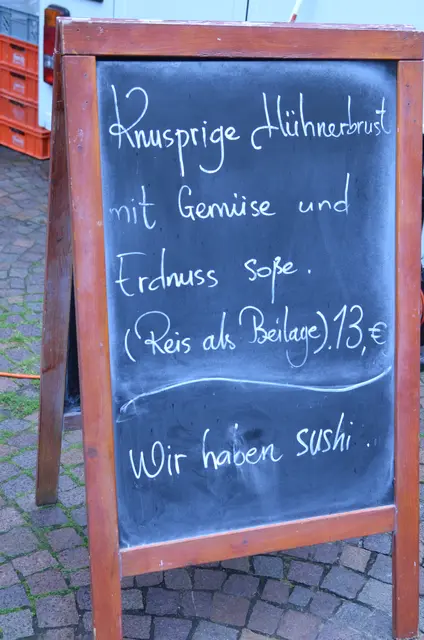 Knusprige Hühnerbrust
mit Gemüse und
Erdnuss soße.
(Reis als Beilage).13,€
Wir haben sushi..